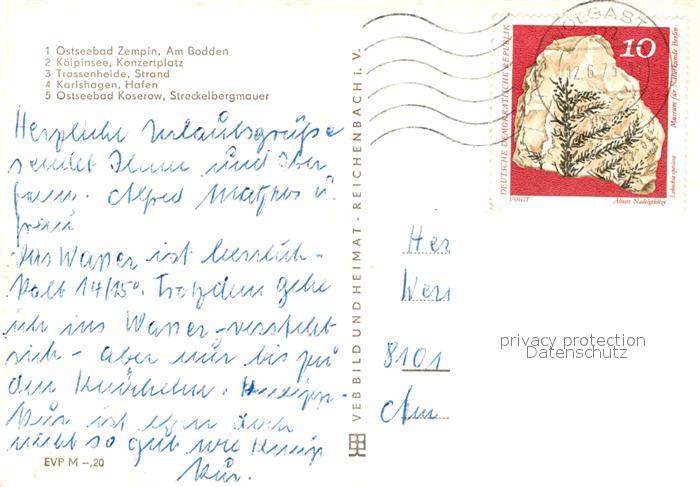 1 Ostseebad Zempin, Am Bodden
2 Kölpinsee, Konzertplatz
3 Trassenheide, Strand
4 Karlshagen, Hafen
5 Ostseebad Koserow, Streckelbergmauer
Herzliche Urlaubsgrüße
sendet Ihnen und Ihrer
Fam. Alfred u.
Frau
Das Wasser ist herrlich-
kalt 14/15°. Trotzdem gehe
ich ins Wasser - versteht
sich - aber nur bis zu
den
Kur ist eben doch
nicht so gut wie Kneipp
Kur.
EVP M -,20
VEB BILD UND HEIMAT · REICHENBACH i. V.
WOLGAST
12.6.73
10
DEUTSCHE DEMOKRATISCHE REPUBLIK
Museum für Naturkunde Berlin
Lebachia speciosa
VOIGT
Älteste Nadelgehölze
Her
Wern
8101
privacy protection
Datenschutz